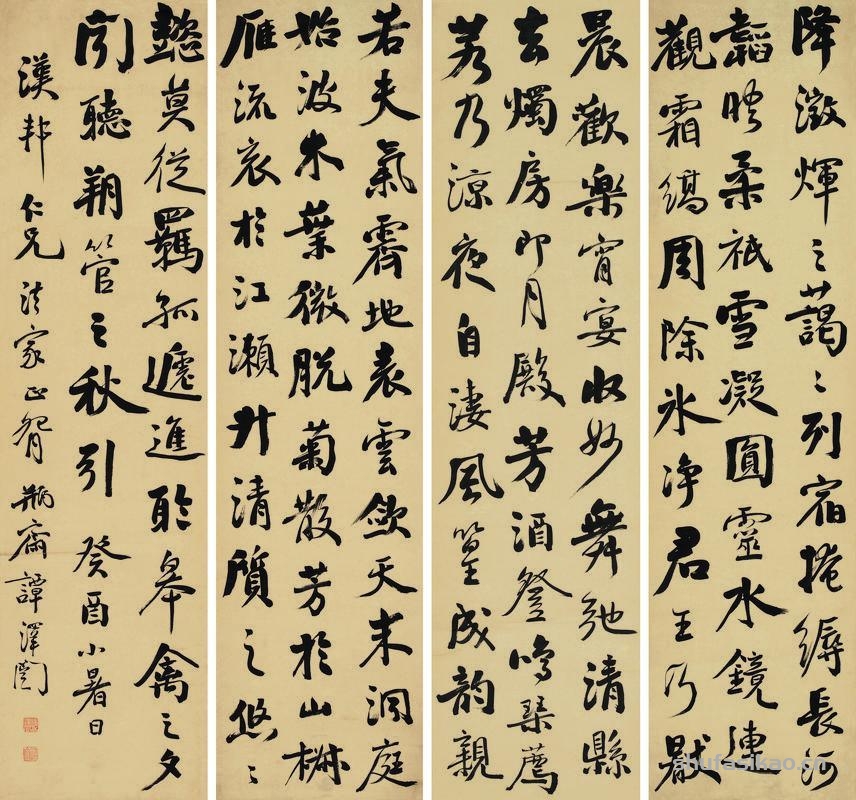 降澂輝之藹〻列宿掩縟長河
韜映柔祇雪凝圓靈水鏡連
觀霜縞周除氷净君王乃猒
晨歡樂宵宴收妙舞弛清縣
去燭房即月殿芳酒登鳴琴薦
若乃涼夜自淒風篁成韻親
若夫氣霽地表雲斂天末洞庭
始波木葉微脫菊散芳於山椒
雁流哀於江瀨升清質之悠〻
懿莫從羈孤遞進聆皋禽之夕
聞聽朔管之秋引 癸酉小暑日
漢邦仁兄法家正 瓶齋譚澤闓
shufazikao.cn